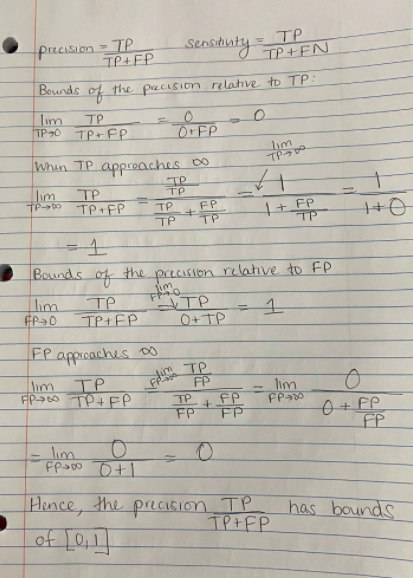 precision = TP / TP+FP   sensitivity = TP / TP+FN
Bounds of the precision relative to TP:
lim TP→0 TP / TP+FP = 0 / 0+FP = 0
When TP approaches ∞
lim TP→∞
lim TP→∞ TP / TP+FP = TP/TP / TP/TP + FP/TP = 1 / 1 + FP/TP = 1 / 1+0
= 1
Bounds of the precision relative to FP
lim FP→0 TP / TP+FP = lim FP→0 TP / 0+TP = 1
FP approaches ∞
lim FP→∞ TP / TP+FP = lim FP→∞ TP/FP / TP/FP + FP/FP = lim FP→∞ 0 / 0 + FP/FP
= lim FP→∞ 0 / 0+1 = 0
Hence, the precision TP / TP+FP has bounds
of [0,1]